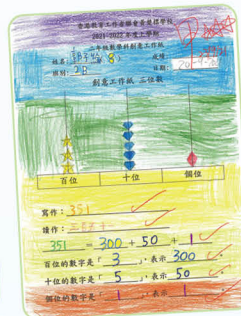 香港教育工作者聯會黃楚標學校
2021-2022 年度上學期
二年級數學科創意工作紙
姓名: 8) 成績:
班別: 2B 日期:
創意工作紙 三位數
百位 十位 個位
寫作: 351
讀作: 三百五十一
351 = 300 + 50 + 1
百位的數字是「 3 」，表示 300
十位的數字是「 5 」，表示 50
個位的數字是「 1 」，表示 1